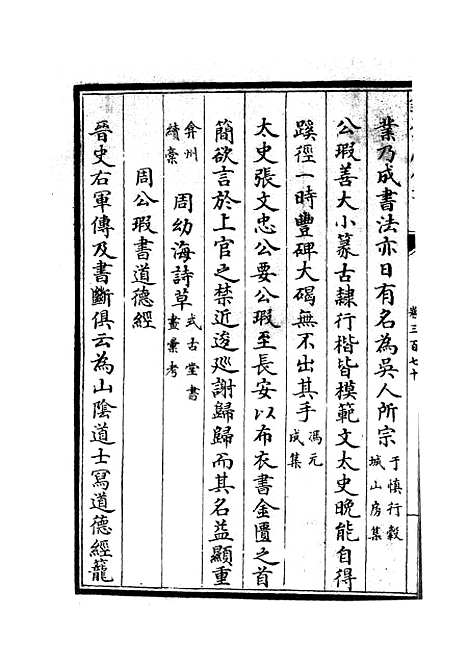 業乃成書法亦日有名為吳人所宗于慎行穀城山房集
公瑕善大小篆古隸行楷皆模範文太史晚能自得
蹊徑一時豐碑大碣無不出其手馮元成集
太史張文忠公要公瑕至長安以布衣書金匱之首
簡欲言於上官之禁近逡巡謝歸歸而其名益顯重
弇州續稾　周幼海詩草式古堂書畫彙考
周公瑕書道德經
晉史右軍傳及書斷俱云為山陰道士寫道德經籠
卷三百七十